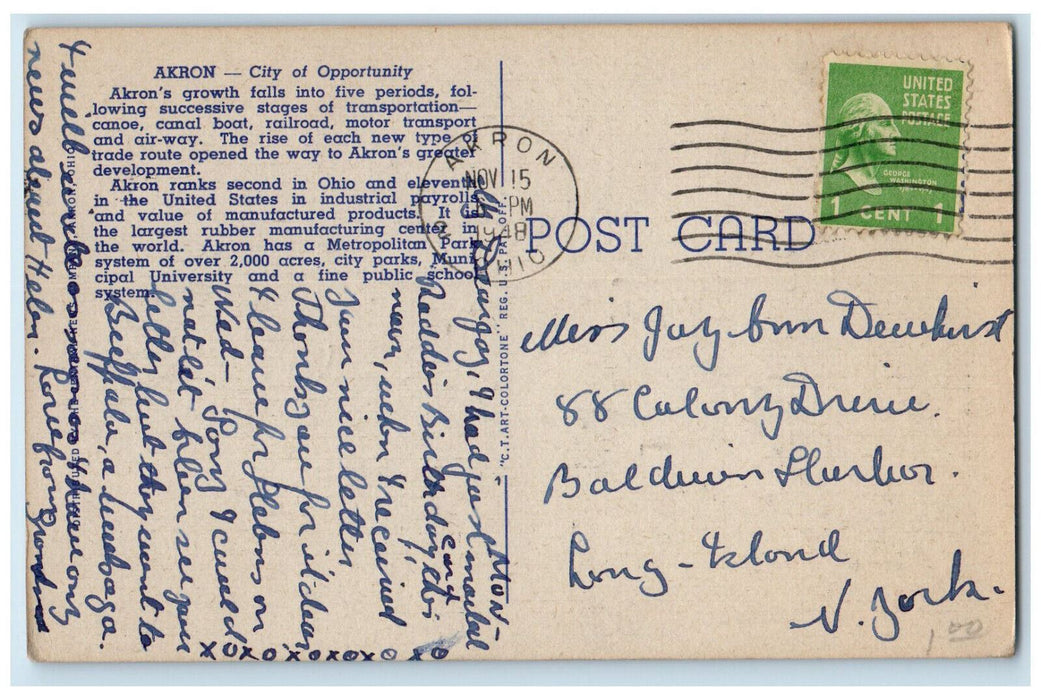 AKRON — City of Opportunity
Akron's growth falls into five periods, fol-
lowing successive stages of transportation—
canoe, canal boat, railroad, motor transport
and air-way. The rise of each new type of
trade route opened the way to Akron's greater
development.
Akron ranks second in Ohio and eleventh
in the United States in industrial payrolls
and value of manufactured products. It is
the largest rubber manufacturing center in
the world. Akron has a Metropolitan Park
system of over 2,000 acres, city parks, Muni-
cipal University and a fine public school
system.
AKRON
NOV 15
PM
1948
OHIO
UNITED
STATES
POSTAGE
GEORGE
WASHINGTON
1 CENT 1
POST CARD
"C.T. ART-COLORTONE" REG. U.S. PAT. OFF.
Miss Judy Ann Dewhirst
88 Colony Drive.
Baldwin Harbor.
Long-Island
N. York.
1 00
Mon-
I had just mailed
Daddies Birthday
card
now, when I received
your nice letter
Thank you for it dear
I leave for Helens on
Wed- Sorry I could
not let Ellen see your
letter but they went to
Buffalo, a week ago.
& will write you when any
news about Helen. Love from Grand
xoxoxoxoxoxo